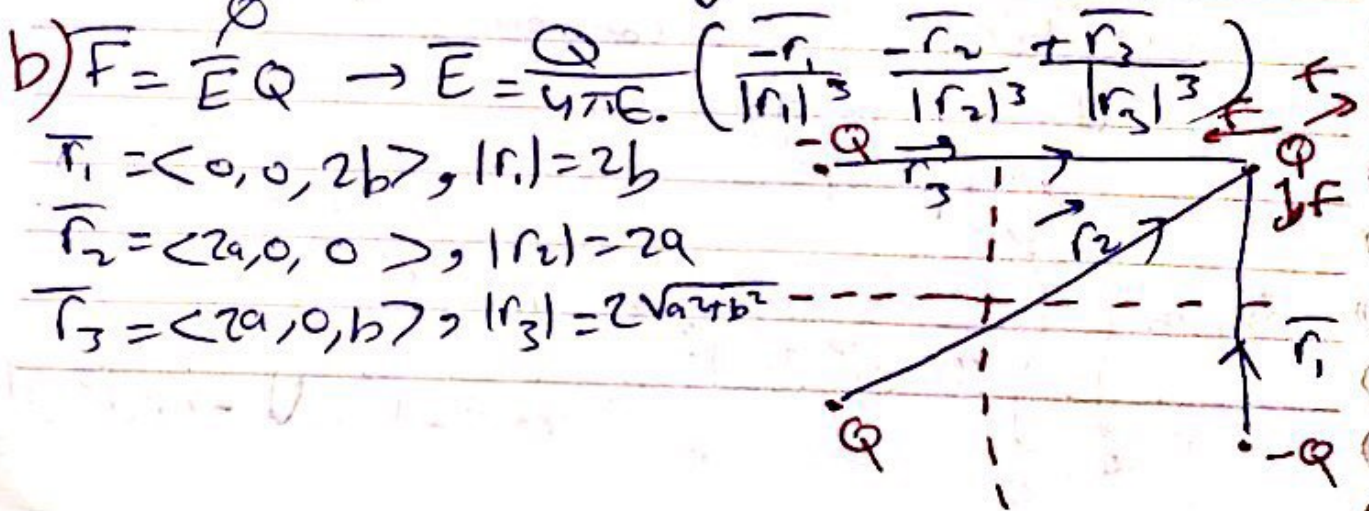 b) F̅ = E̅ Q → E̅ = Q/4πε. (-r̅₁/|r₁|³ -r̅₂/|r₂|³ +r̅₃/|r₃|³)
r̅₁ = <0, 0, 2b>, |r₁| = 2b
r̅₂ = <2a, 0, 0>, |r₂| = 2a
r̅₃ = <2a, 0, b>, |r₃| = 2√a²+b²
-Q
r₃
F
F
Q
F
r₂
r̅₁
Q
-Q